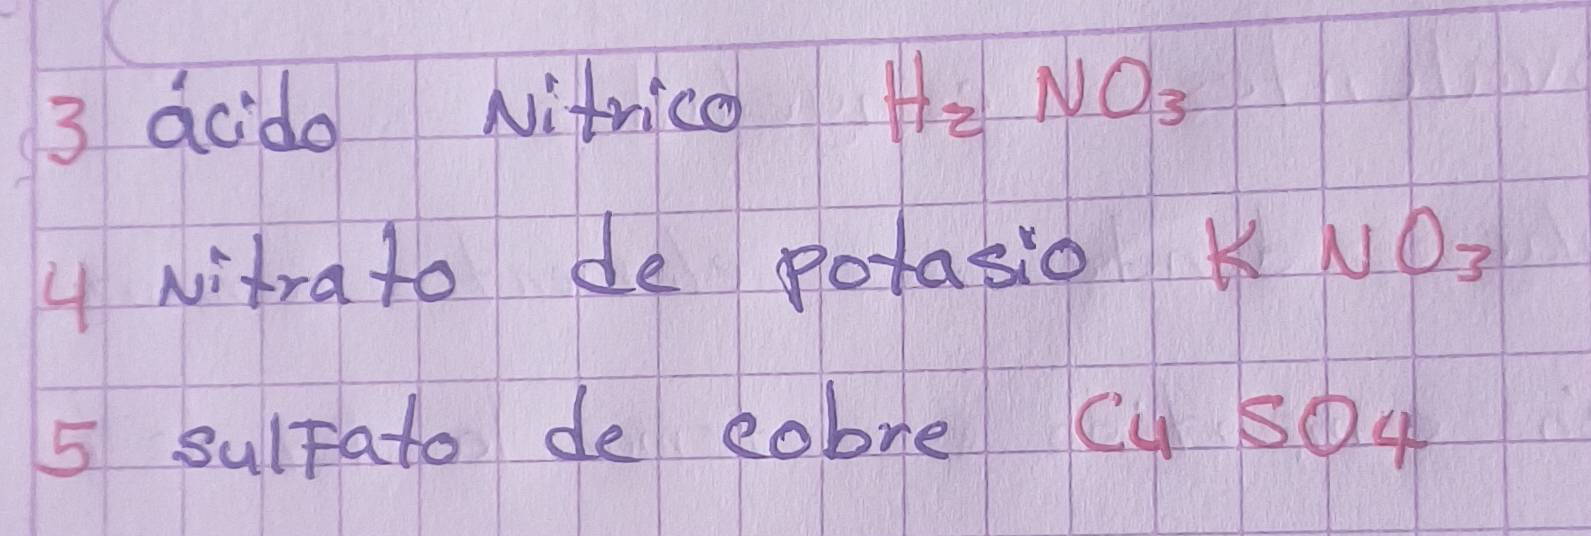 3 ácido Nitrico H₂ NO₃
4 Nitrato de potasio K NO₃
5 sulfato de cobre Cu SO₄